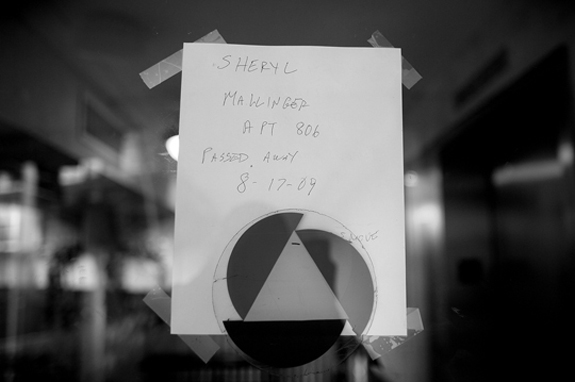 SHERYL
MALLINGER
APT 806
PASSED AWAY
8-17-09